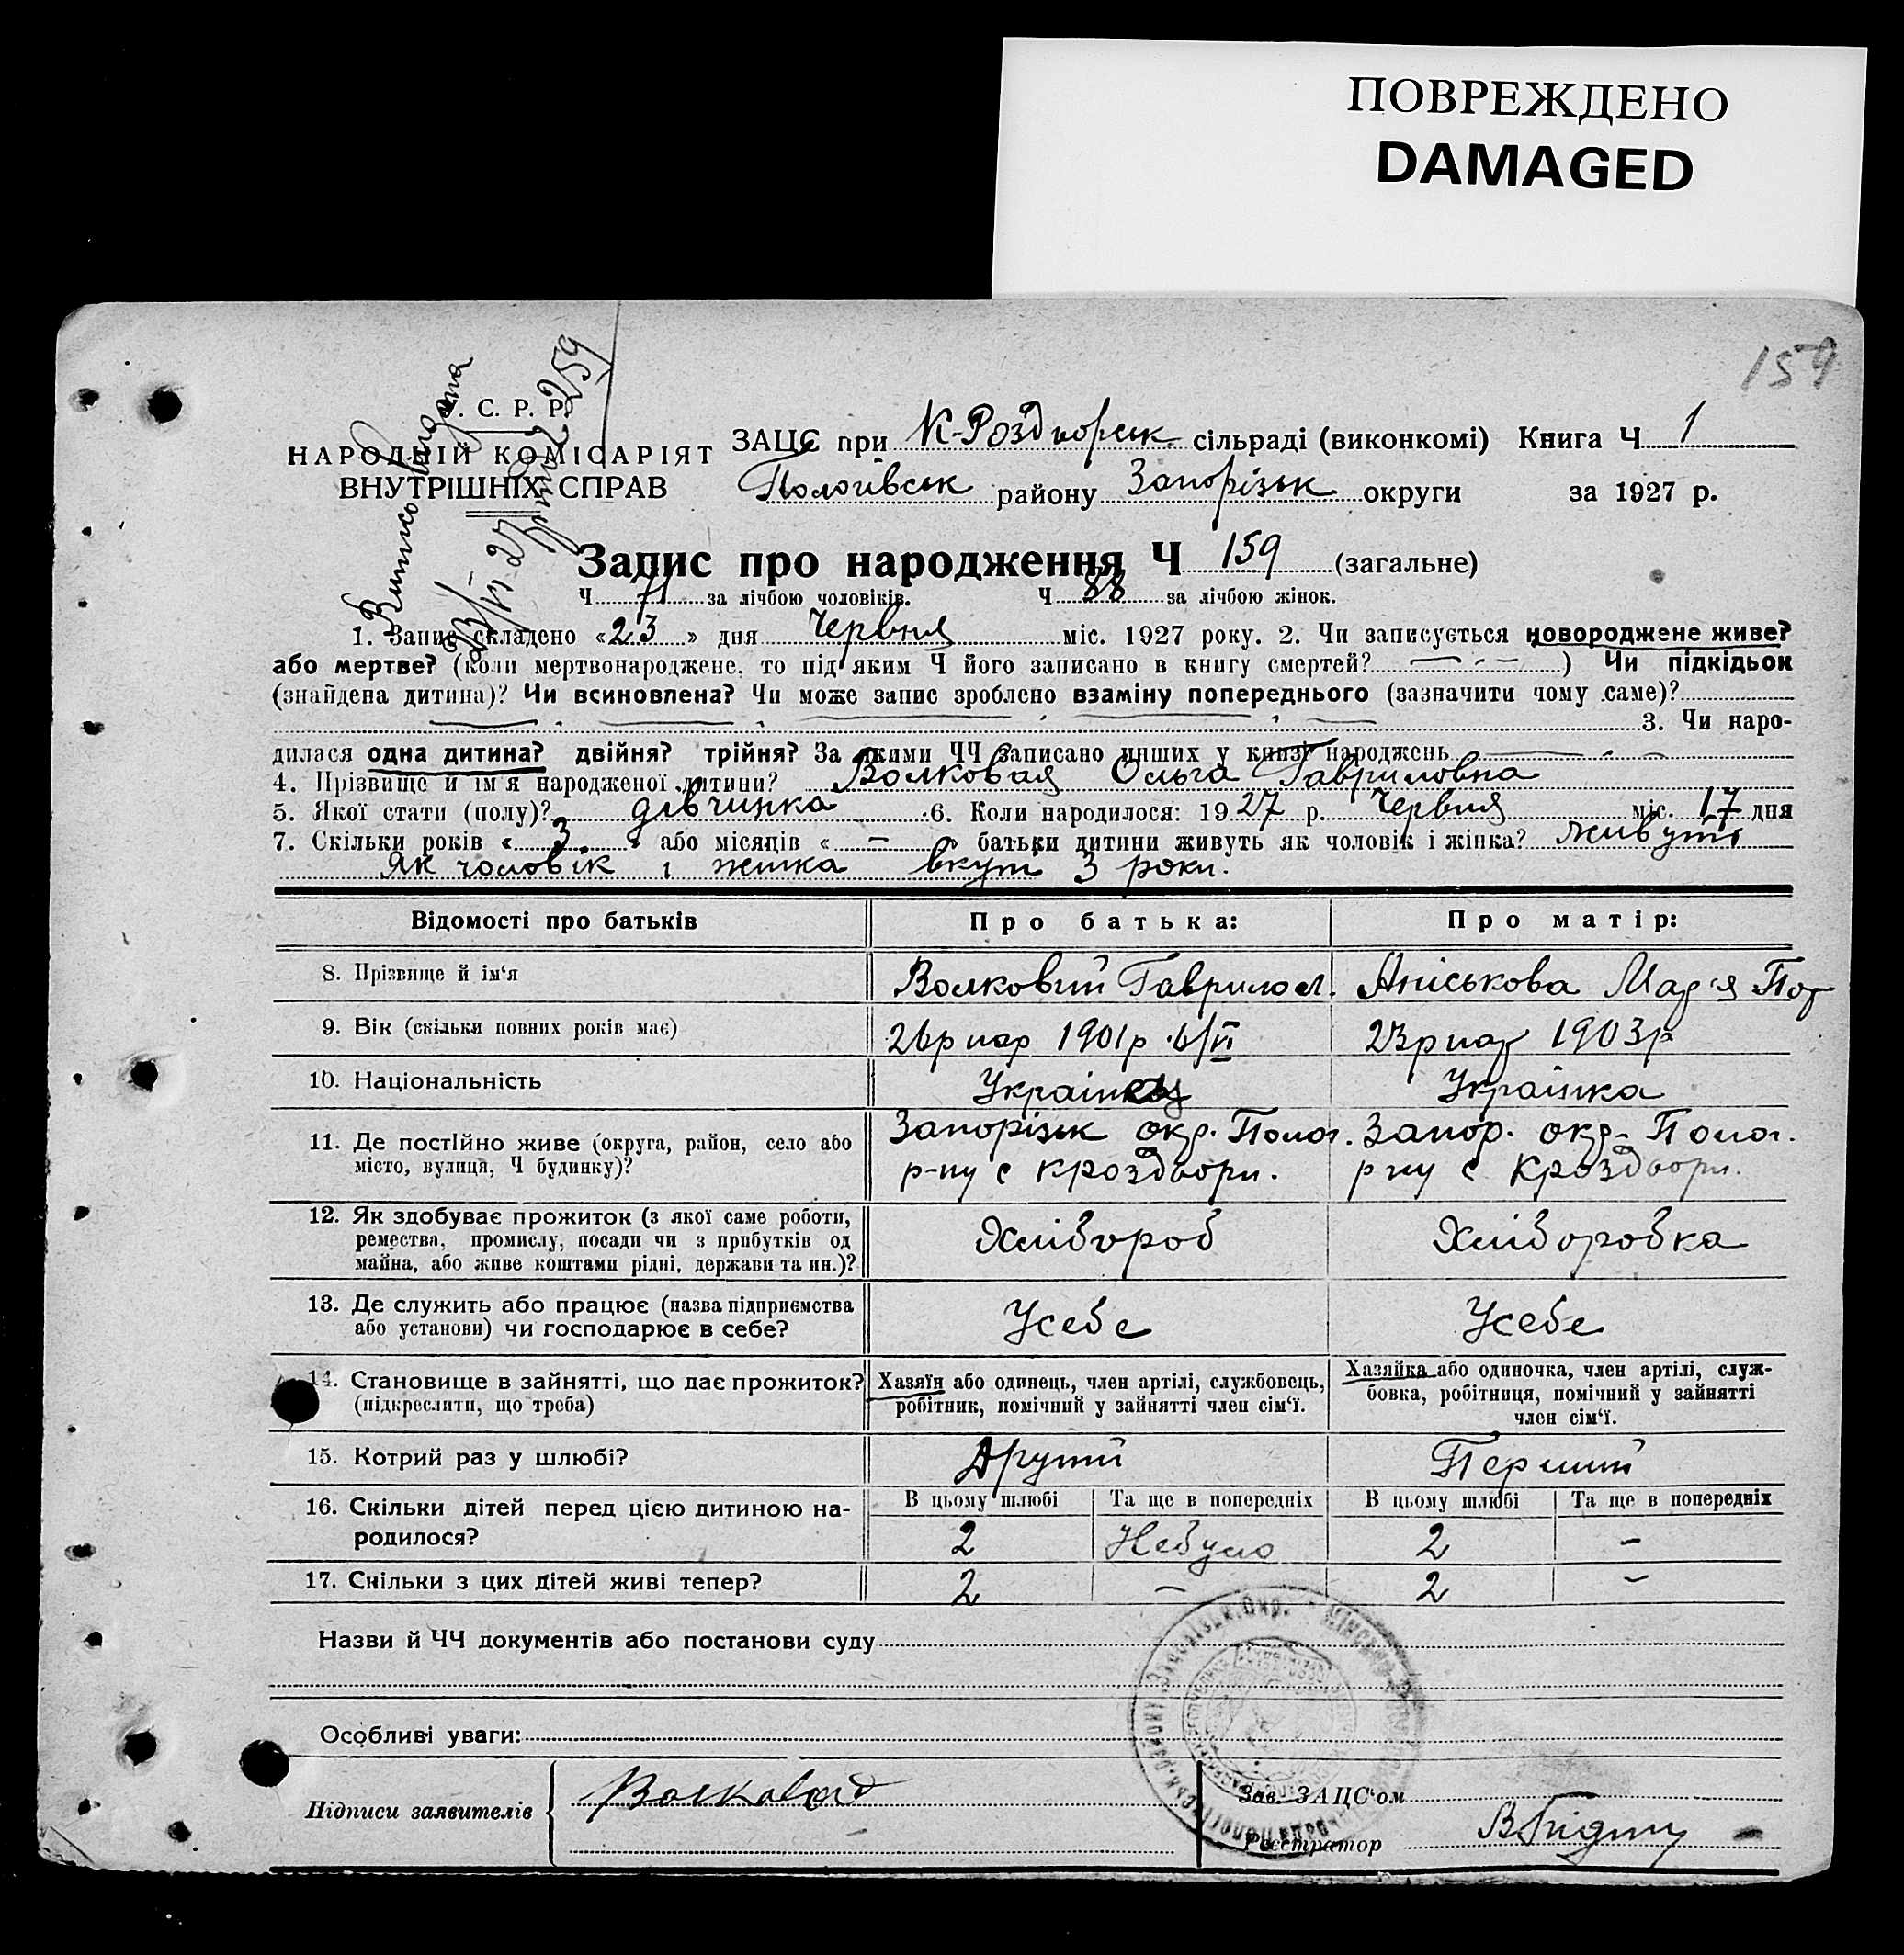 ПОВРЕЖДЕНО
DAMAGED
159
С. Р. Р.
НАРОДНІЙ КОМІСАРІЯТ
ВНУТРІШНІХ СПРАВ
23/VI 27
259
ЗАЦС при К-Роздорськ сільраді (виконкомі) Книга Ч 1
Пологівськ району Запорізьк округи за 1927 р.
Запис про народження Ч 159 (загальне)
Ч 71 за лічбою чоловіків. Ч 88 за лічбою жінок.
1. Запис складено «23» дня Червня міс. 1927 року. 2. Чи записується новороджене живе?
або мертве? (коли мертвонароджене, то під яким Ч його записано в книгу смертей? —) Чи підкідьок
(знайдена дитина)? Чи всиновлена? Чи може запис зроблено взаміну попереднього (зазначити чому саме)?
3. Чи наро-
дилася одна дитина? двійня? трійня? За якими ЧЧ записано инших у книзі народжень —
4. Прізвище й ім'я народженої дитини? Волковая Ольга Гавриловна
5. Якої стати (полу)? дівчинка 6. Коли народилося: 1927 р. Червня міс. 17 дня
7. Скільки років «3» або місяців «—» батьки дитини живуть як чоловік і жінка? живуть
Як чоловік і жінка вкупі 3 роки.
Відомості про батьків Про батька: Про матір:
8. Прізвище й ім'я Волковий Гаврило Аніськова
9. Вік (скільки повних років має) 26 р нар 1901 р. 6/VI 23 р нар 1903 р
10. Національність Українец Українка
11. Де постійно живе (округа, район, село або Запорізьк окр. Полог. Запор. окр. Полог.
місто, вулиця, Ч будинку)? р-ну с Кроздори. р ну с Кроздори.
12. Як здобуває прожиток (з якої саме роботи,
ремества, промислу, посади чи з прибутків од Хлібороб Хліборобка
майна, або живе коштами рідні, держави та ин.)?
13. Де служить або працює (назва підприємства
або установи) чи господарює в себе? Усебе Усебе
14. Становище в зайнятті, що дає прожиток? (підкреслити, що треба)
Хазяїн або одинець, член артілі, службовець, робітник, помічний у зайнятті член сім'ї.
Хазяйка або одиночка, член артілі, служ-
бовка, робітниця, помічний у зайнятті
член сім'ї.
15. Котрий раз у шлюбі? Другий Перший
16. Скільки дітей перед цією дитиною на- В цьому шлюбі Та ще в попередніх В цьому шлюбі Та ще в попередніх
родилося? 2 Небуло 2 –
17. Скільки з цих дітей живі тепер? 2 — 2 –
Назви й ЧЧ документів або постанови суду
Особливі уваги:
Підписи заявителів Волковой
Зав. ЗАЦС'ом
Реєстратор